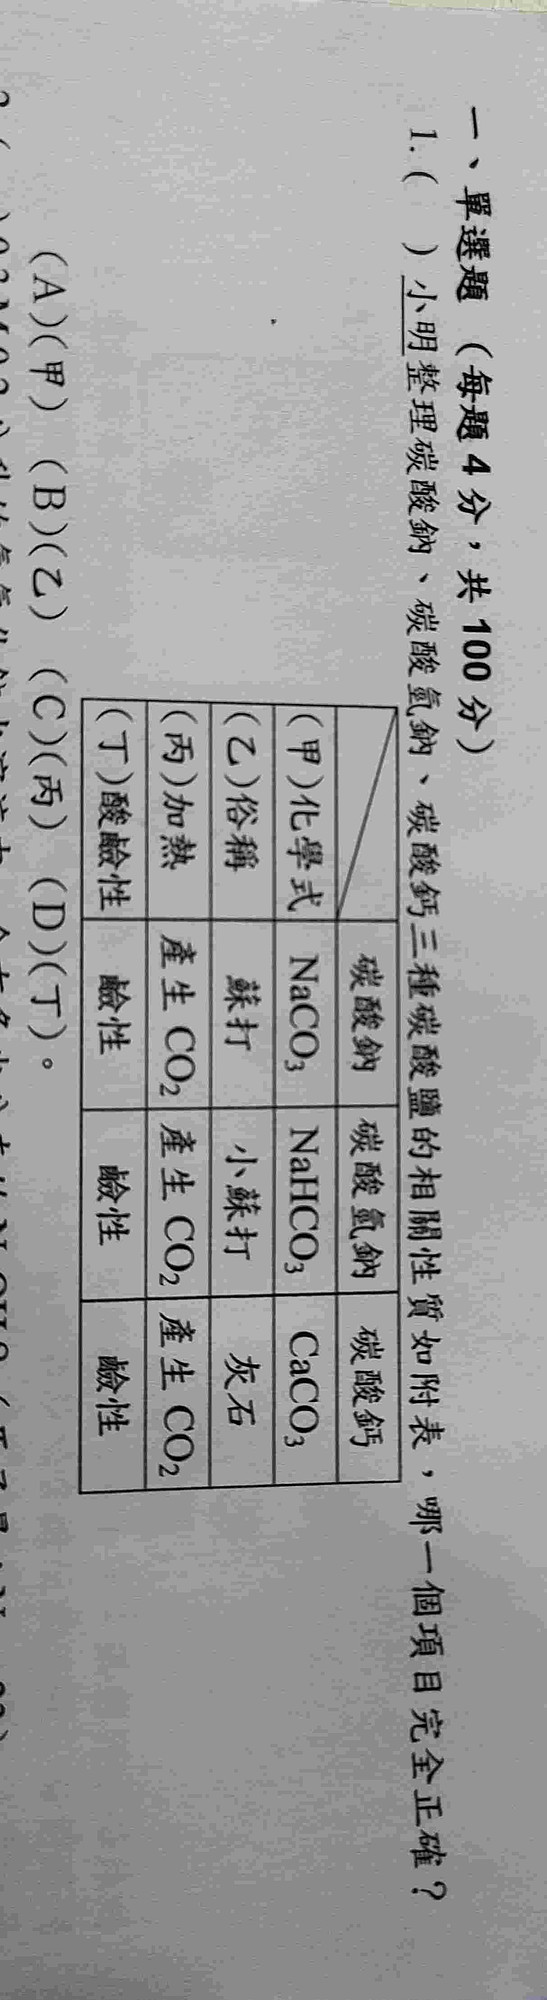 一、單選題（每題4分，共100分）
1.(　)小明整理碳酸鈉、碳酸氫鈉、碳酸鈣三種碳酸鹽的相關性質如附表，哪一個項目完全正確？
碳酸鈉 碳酸氫鈉 碳酸鈣
(甲)化學式 NaCO3 NaHCO3 CaCO3
(乙)俗稱 蘇打 小蘇打 灰石
(丙)加熱 產生 CO2 產生 CO2 產生 CO2
(丁)酸鹼性 鹼性 鹼性 鹼性
(A)(甲) (B)(乙) (C)(丙) (D)(丁)。